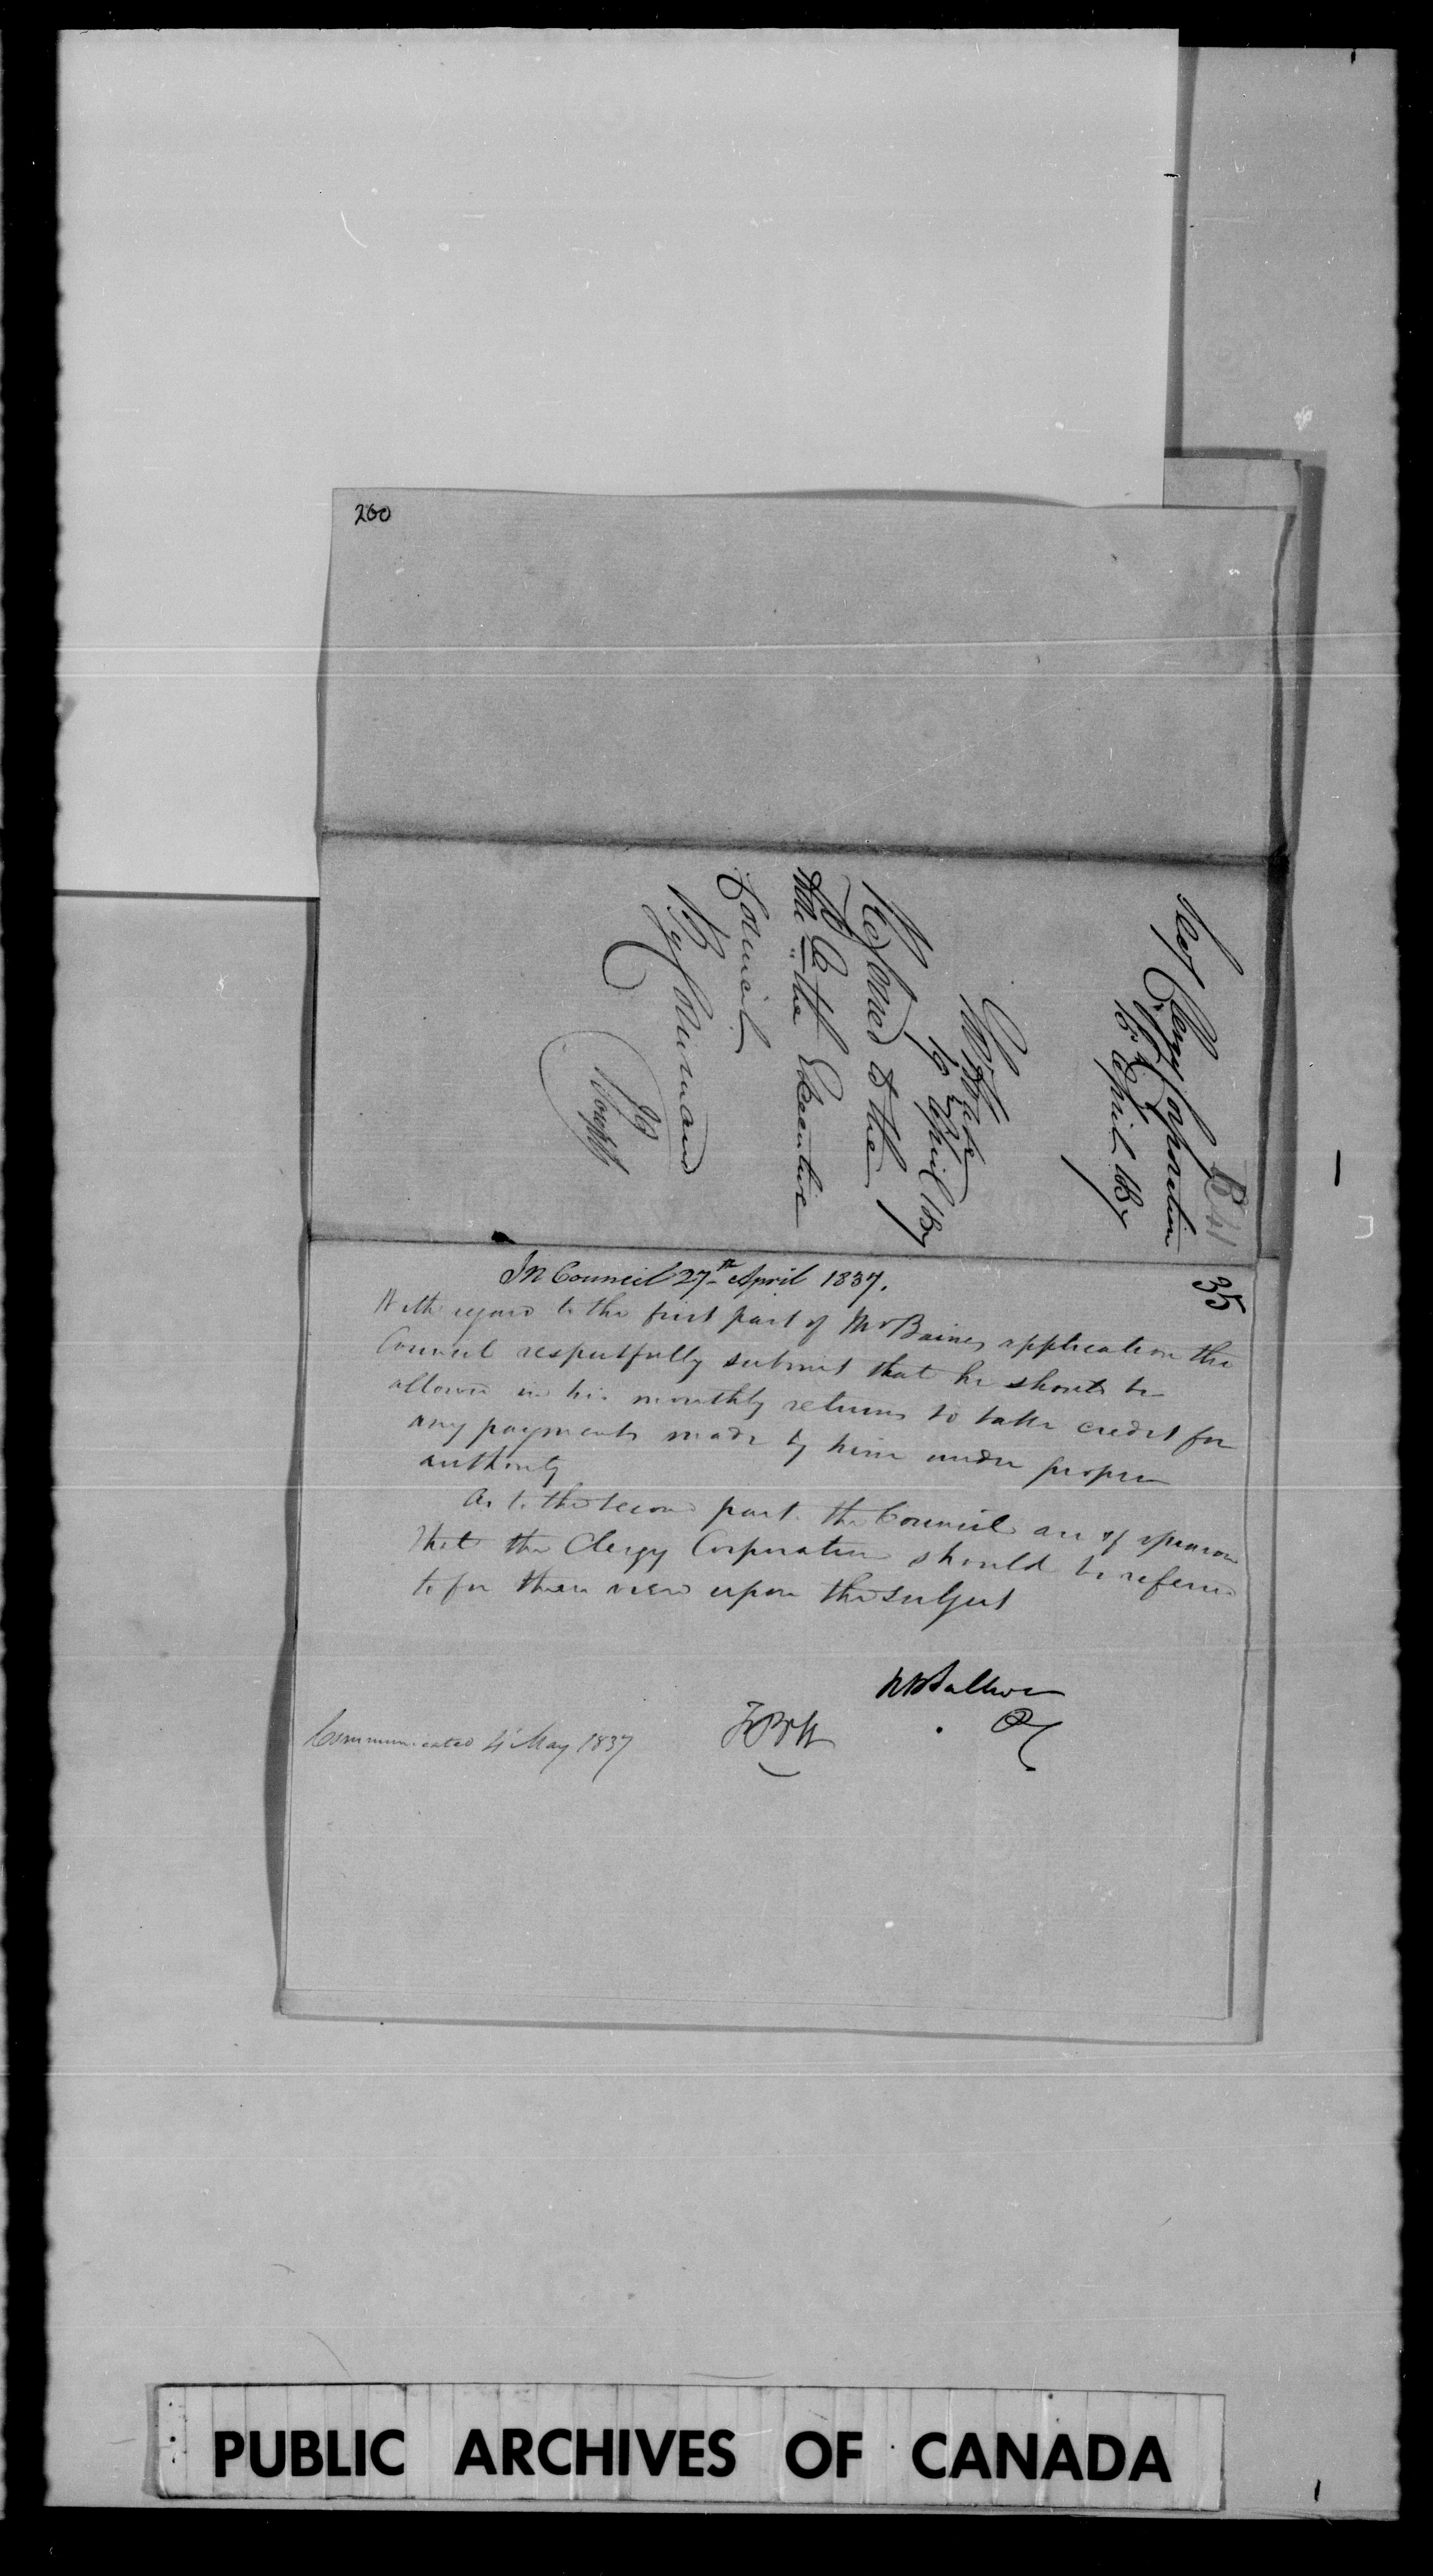 200
Secy Clergy Corporation
15 April 1837
19 April 1837
Referred to the
Hon. the Executive
Council
By Command
J Joseph
35
In Council 27th April 1837.
With regard to the first part of Mr Baines application the
Council respectfully submit that he should be
allowed in his monthly returns to take credit for
any payments made by him under proper
authority
As to the second part the Council are of opinion
that the Clergy Corporation should be referred
to for their view upon the subject
RBSullivan
PC
FBH
Communicated 4 May 1837
PUBLIC ARCHIVES OF CANADA